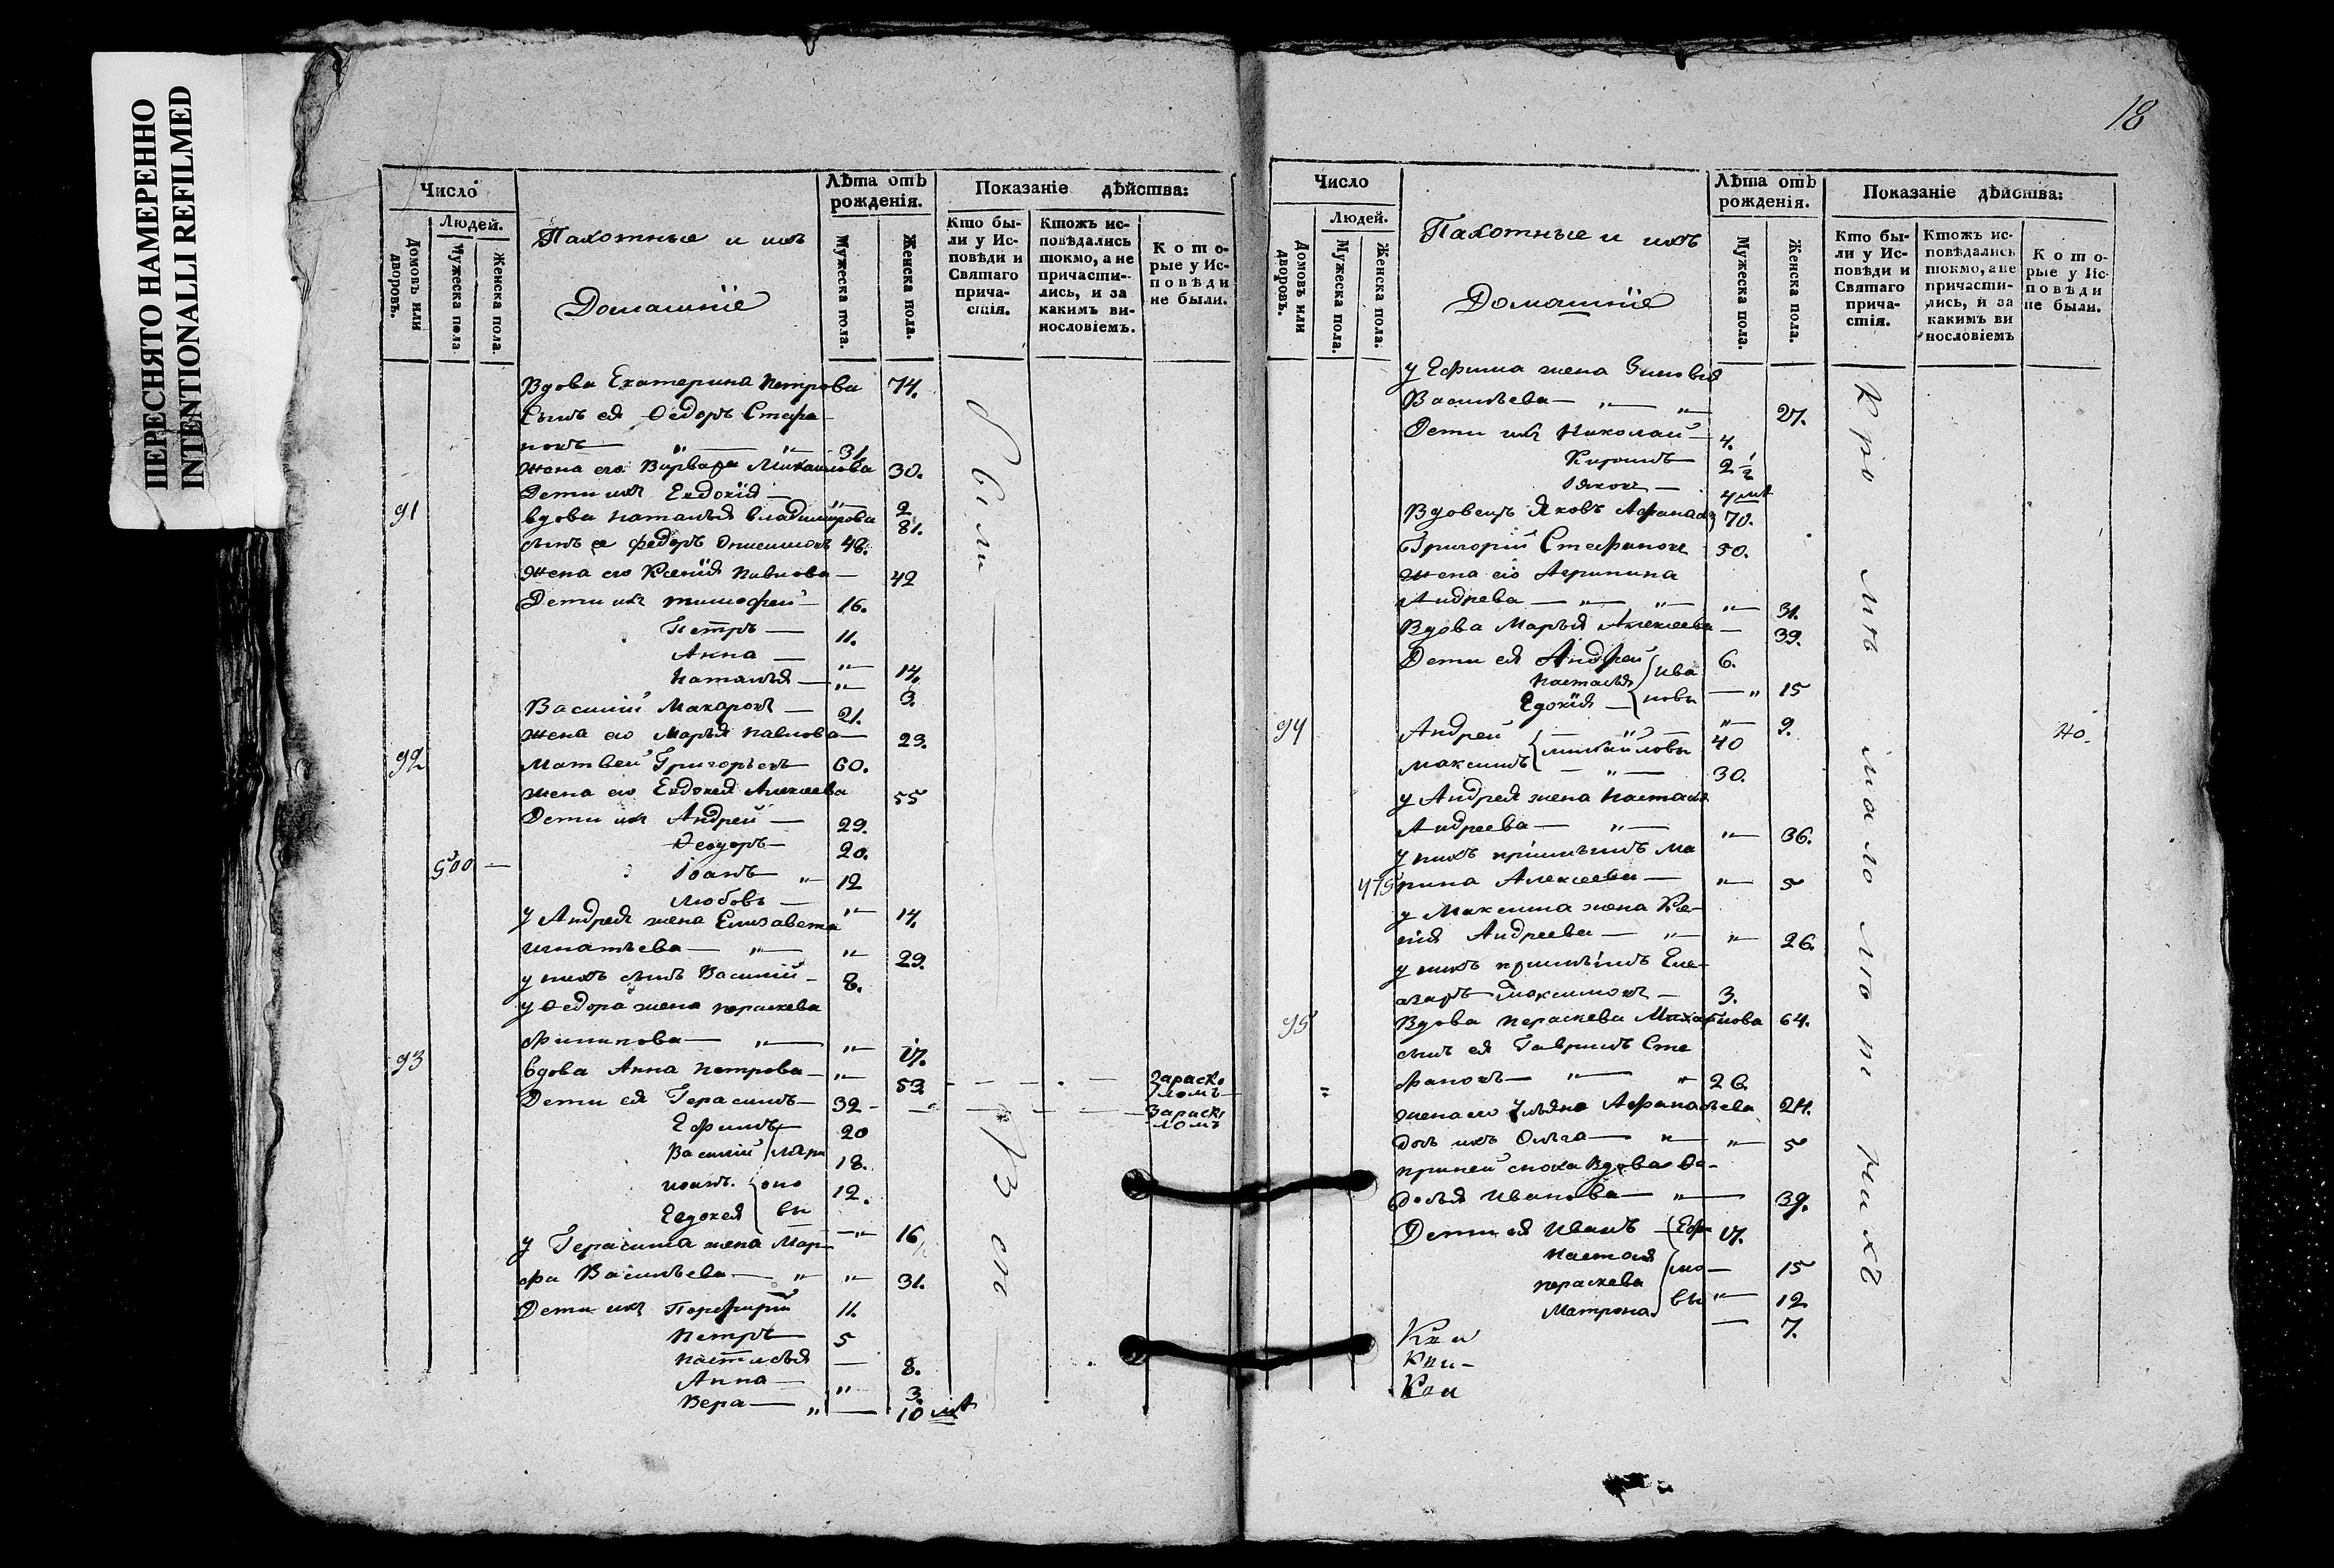 ПЕРЕСНЯТО НАМЕРЕННО
INTENTIONALLI REFILMED
Число
Людей.
Домовъ или дворовъ.
Мужеска пола
Женска пола.
Пахотные и ихъ
Домашніе
Лѣта отъ рожденія.
Мужеска пола.
Женска пола.
Показаніе дѣйства:
Кто бы-
ли у Ис-
повѣди и
Святаго
прича-
стія.
Ктожъ ис-
повѣдались
токмо, а не
причасти-
лись, и за
какимъ ви-
нословіемъ.
Кото-
рые у Ис-
повѣди
не были.
Вдова Екатерина Петрова 74.
Сынъ ея Ѳедоръ Стефа
новъ — " — " — 31.
Жена его Варвара Михаилова 30.
Дети ихъ Евдокія — " — 2
91 вдова Наталья владимирова 81.
сынъ ея федоръ 48.
Жена его Ксенія Павлова — 42
Дети ихъ тимофей — 16.
Петръ — 11.
Анна — " — 14.
Наталья — " — 3.
Василий Макаровъ — 21.
Жена его Марья Павлова — 23.
92 Матвей Григорьевъ 60.
Жена его Евдокея Алексеева 55
Дети ихъ Андрей — 29.
Ѳеодоръ — 20.
500 — Іоанъ " — 12
Любовь — " — 14.
у Андрея жена Елизавета
игнатьева — " — " — 29.
у нихъ сынъ Василий — 8.
у Ѳедора жена параскева
Филипова — " — " — 17.
93 вдова Анна Петрова — " — 53. Зараско
ломъ
Дети ея Герасимъ — 32 — Зараско
ломъ
Ефимъ 20
Василий 18.
иоанъ. 12.
Евдокея — " — 16
у Герасима жена Мар
фа Васильева — " " — 31.
Дети ихъ Порфирий 11.
Петръ — 5
Настасья — 8.
Анна — " 3.
Вера — " — 10
Были
18
Число
Людей.
Домовъ или дворовъ.
Мужеска пола.
Женска пола.
Пахотные и ихъ
Домашніе
Лѣта отъ рожденія.
Мужеска пола.
Женска пола.
Показаніе дѣйства:
Кто бы-
ли у Ис-
повѣди и
Святаго
прича-
стія.
Ктожъ ис-
повѣдались
токмо, а не
причасти-
лись, и за
какимъ ви
нословіемъ
Кото-
рые у Ис-
повѣди
не были.
у Ефима жена Зиновья
Васильева — " — " — 27.
Дети ихъ Николай — 4.
Кирилъ 2 1/2
Іяковъ — 4
Вдовецъ Яковъ Афанась 70.
Григорий Стефановъ 50.
Жена его Агрипина
Андрева — " — " — " — 31.
Вдова Марья Алексеева — 39.
Дети ея Андрей 6.
Настасья ива
новы — " 15
Едокія — " — 9.
94 Андрей 40 40.
максимъ михайловы 30.
у Андрея жена Настасья
Андреева — " — " — 36.
у нихъ приимышъ Ма
475 рина Алексеева — " — 5
у Максима жена Ксе-
нія Андреева — " — " — 26.
у нихъ приимышъ Еле-
азаръ максимовъ — 3.
95 Вдова параскева Михайлова 64.
сынъ ея Гаврилъ Сте
фановъ — " — " 26.
жена его Ульяна Афанасьева 24.
дочь ихъ Ольга — " — " — 5
приней сноха Вдова Ѳе-
досья Иванова — " — 39.
Дети ея Иванъ 17.
Настасья — 15
параскева " — 12
Матрона — 7.
кромѣ малолютнихъ